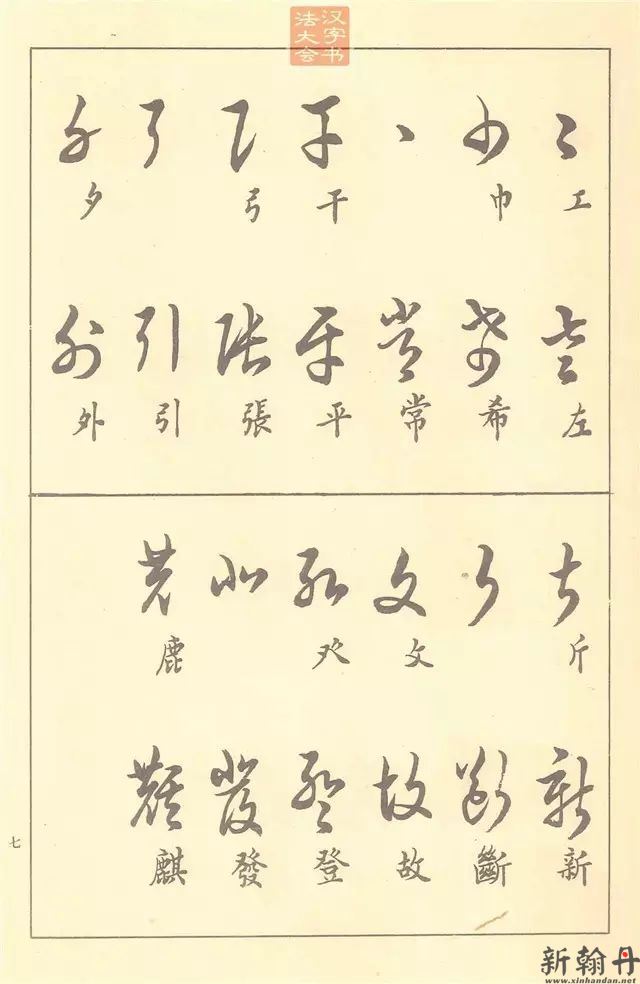 汉字书
法大会
工 巾 干 弓 夕
左 希 常 平 張 引 外
斤 攵 癶 鹿
新 斷 故 登 發 麒
七
新翰丹
www.xinhandan.net